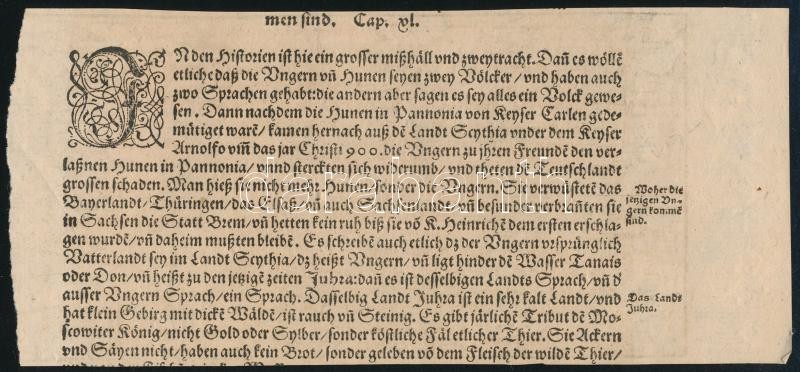 men sind. Cap. xl.
IN den Historien ist hie ein grosser mißhäll vnd zweytracht. Dañ es wöllē
etliche daß die Vngern vñ Hunen seyen zwey Völcker/ vnd haben auch
zwo Sprachen gehabt: die andern aber sagen es sey alles ein Volck gewe-
sen. Dann nachdem die Hunen in Pannonia von Keyser Carlen gede-
mütiget warē/ kamen hernach auß dē Landt Scythia vnder dem Keyser
Arnolfo vm̃ das jar Christi 900. die Vngern zu jhren Freunden den ver-
laßnen Hunen in Pannonia/ vnnd sterckten sich widerumb/ vnd theten dē Teutschlandt
grossen schaden. Man hieß sie nicht mehr Hunen/ sonder die Vngern. Sie verwüstetē das
Bayerlandt/ Thüringen/ das Elsaß/ vñ auch Sachsenlandt/ vñ besunder verbrañten sie
in Sachsen die Statt Brem/ vñ hetten kein ruh biß sie vō K. Heinrichē dem ersten erschla-
gen wurdē/ vñ daheim mußten bleibē. Es schreibē auch etlich dz der Vngern vrsprünglich
Vatterlandt sey im Landt Scythia/ dz heißt Vngern/ vñ ligt hinder dē Wasser Tanais
oder Don/ vñ heißt zu den jetzigē zeiten Juhra: dañ es ist desselbigen Landts Sprach/ vñ d
ausser Vngern Sprach/ ein Sprach. Dasselbig Landt Juhra ist ein sehr kalt Landt/ vnd
hat klein Gebirg mit dickē Wäldē/ ist rauch vñ Steinig. Es gibt järlichē Tribut dē Mo-
scowiter König/ nicht Gold oder Sylber/ sonder köstliche Fäl etlicher Thier. Sie Ackern
vnd Säyen nicht/ haben auch kein Brot/ sonder geleben vō dem Fleisch der wildē Thier/
Woher die
jetzigen Vn-
gern kommē
sind.
Das Landt
Juhra.